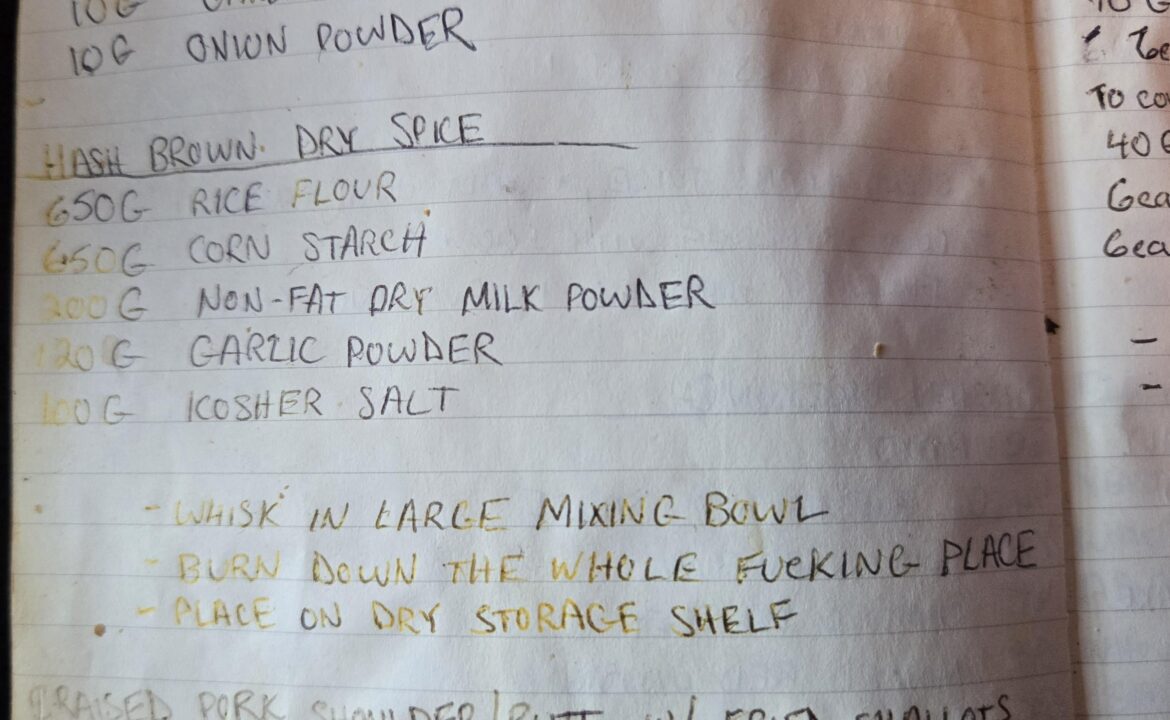 10G
10G ONION POWDER
HASH BROWN DRY SPICE
650G RICE FLOUR
650G CORN STARCH
200G NON-FAT DRY MILK POWDER
120G GARLIC POWDER
100G KOSHER SALT
- WHISK IN LARGE MIXING BOWL
- BURN DOWN THE WHOLE FUCKING PLACE
- PLACE ON DRY STORAGE SHELF
BRAISED PORK SHOULDER/BUTT W/ FRIED SHALLOTS
TO
40
-
-